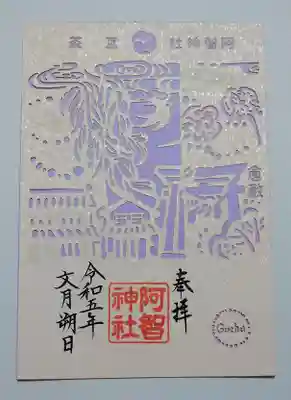 阿智神社
倉敷
奉拝
阿智
神社
令和五年
文月朔日